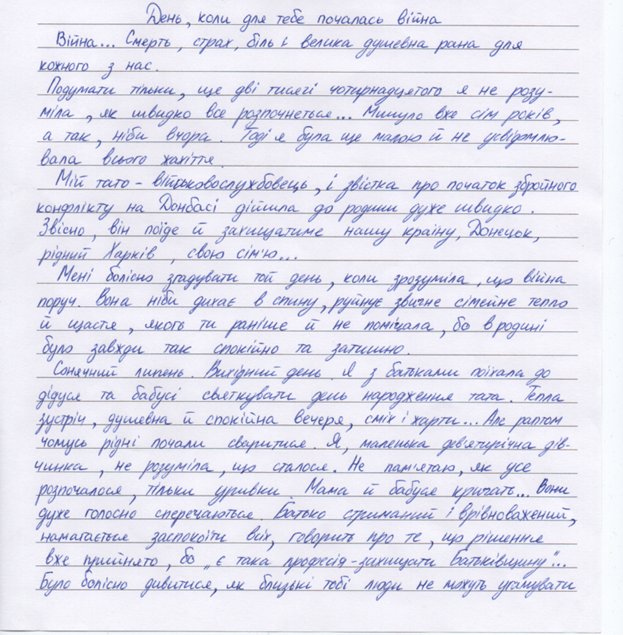 День, коли для тебе почалась війна
Війна... Смерть, страх, біль і велика душевна рана для
кожного з нас.
Подумати тільки, ще дві тисячі чотирнадцятого я не розу-
міла, як швидко все розпочнеться... Минуло вже сім років,
а так, ніби вчора. Тоді я була ще малою й не усвідомлю-
вала всього жахіття.
Мій тато - військовослужбовець, і звістка про початок збройного
конфлікту на Донбасі дійшла до родини дуже швидко.
Звісно, він поїде й захищатиме нашу країну, Донецок,
рідний Харків, свою сім'ю...
Мені болісно згадувати той день, коли зрозуміла, що війна
поруч. Вона ніби дихає в спину, руйнує звичне сімейне тепло
й щастя, якого ти раніше й не помічала, бо в родині
було завжди так спокійно та затишно.
Сонячний липень. Вихідний день. Я з батьками поїхала до
дідуся та бабусі святкувати день народження тата. Тепла
зустріч, душевна й спокійна вечеря, сміх і жарти... Але раптом
чомусь рідні почали сваритися. Я, маленька дев'ятирічна дів-
чинка, не розуміла, що сталося. Не пам'ятаю, як усе
розпочалося, тільки уривки. Мама й бабуся кричать... Вони
дуже голосно сперечаються. Батько стриманий і врівноважений,
намагається заспокоїти всіх, говорить про те, що рішення
вже прийнято, бо „є така професія - захищати Батьківщину"...
Було болісно дивитися, як близькі тобі люди не можуть угамувати